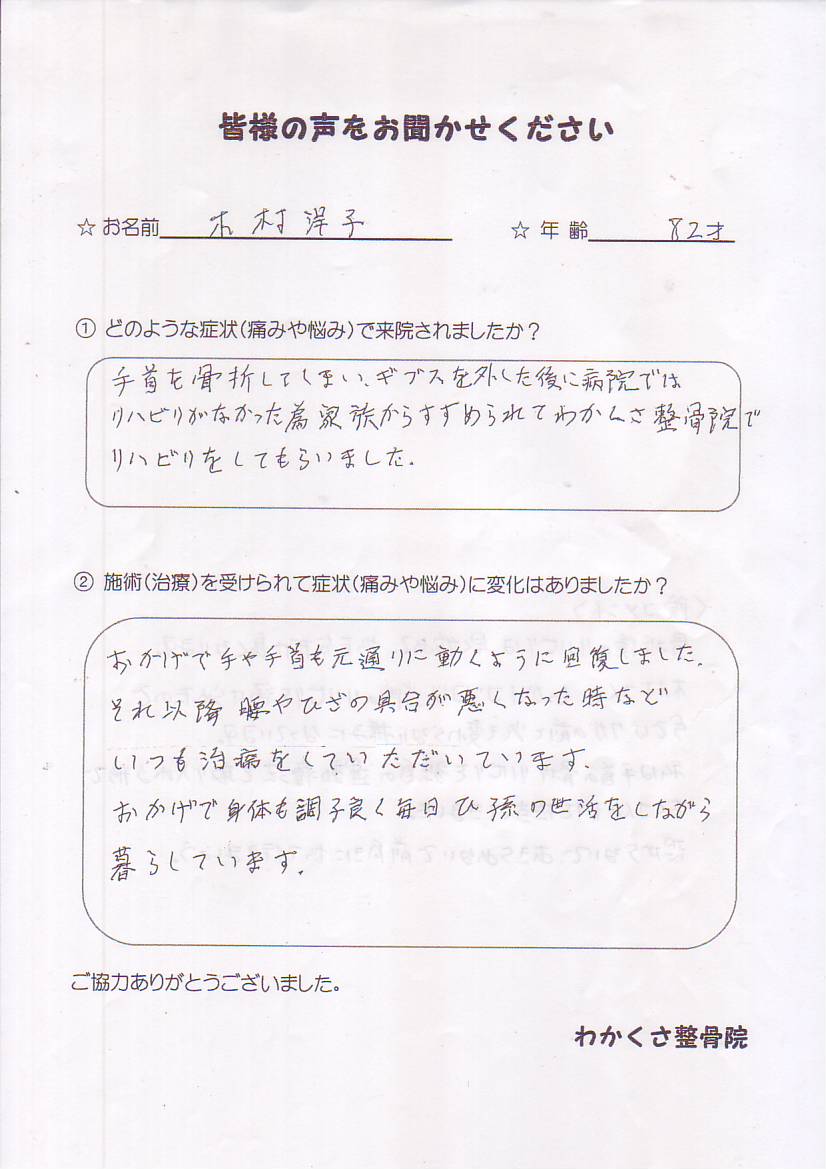 皆様の声をお聞かせください
☆お名前 木村洋子 ☆年齢 82才
① どのような症状(痛みや悩み)で来院されましたか?
手首を骨折してしまい、ギブスを外した後に病院では
リハビリがなかった為家族からすすめられてわかくさ整骨院で
リハビリをしてもらいました.
② 施術(治療)を受けられて症状(痛みや悩み)に変化はありましたか?
おかげで手や手首も元通りに動くように回復しました.
それ以降 腰やひざの具合が悪くなった時など
いつも治療をしていただいています.
おかげで身体も調子良く毎日ひ孫の世活をしながら
暮らしています.
ご協力ありがとうございました。
わかくさ整骨院